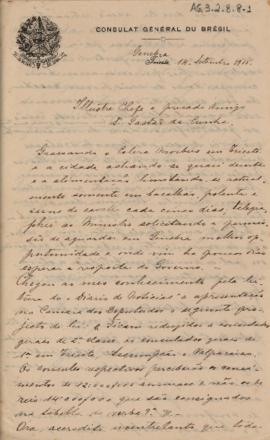 AG.3.2.8.8-1
CONSULAT GÉNÉRAL DU BRÉSIL
Genebra
14 Setembro 1915
Illustre Chefe e presado amigo
Dr. Gastão da Cunha,
Grassando o Colera Morbus em Trieste
e a cidade achando-se
e a alimentação limitando-se actual-
mente somente em bacalhau, polenta e
carne de cavallo cada cinco dias, telegra-
phei ao Ministro solicitando a permis-
são de aguardar em Genebra melhor op-
portunidade e onde vim ha poucos dias
esperar a resposta do Governo.
Chegou ao meu conhecimento pela lei-
tura do "Diario de Noticias" a apresentação
na Camara dos Deputados o seguinte pro-
jecto de lei: "Ficam reduzidos a consulados
geraes de 2ª classe os consulados geraes de
1ª em Trieste, Assumpção e Valparaiso.
Os consules respectivos perceberão os venci-
mentos de 12:000$000 annuaes e não os de
que são consignados
na tabella da verba
Ora, acredito que toda